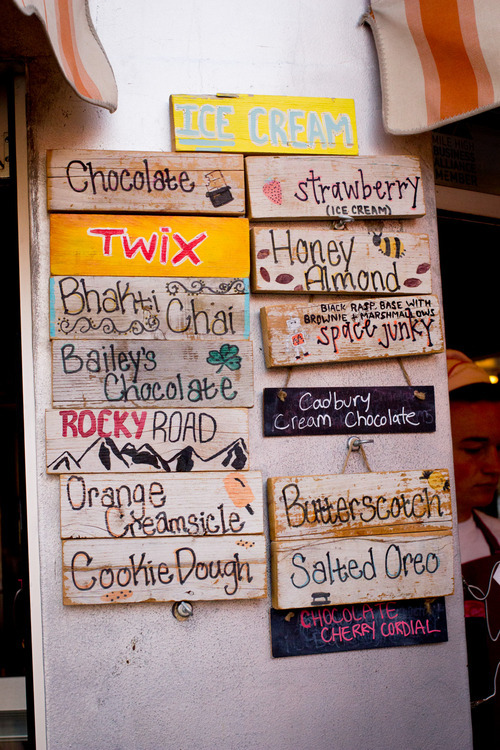 ICE CREAM
Chocolate
TWIX
Bhakti
Chai
Bailey's
Chocolate
ROCKY ROAD
Orange
Creamsicle
Cookie Dough
strawberry
(ICE CREAM)
Honey
Almond
BLACK RASP. BASE WITH
BROWNIE + MARSHMALLOWS
space junky
Cadbury
Cream Chocolate
Butterscotch
Salted Oreo
CHOCOLATE
CHERRY CORDIAL